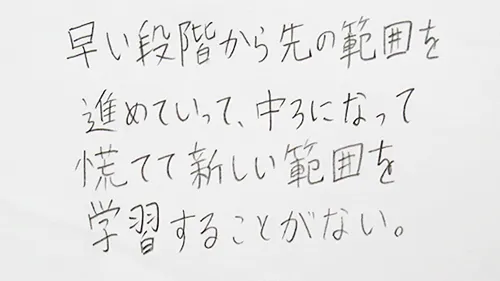 早い段階から先の範囲を
進めていって、中3になって
慌てて新しい範囲を
学習することがない。